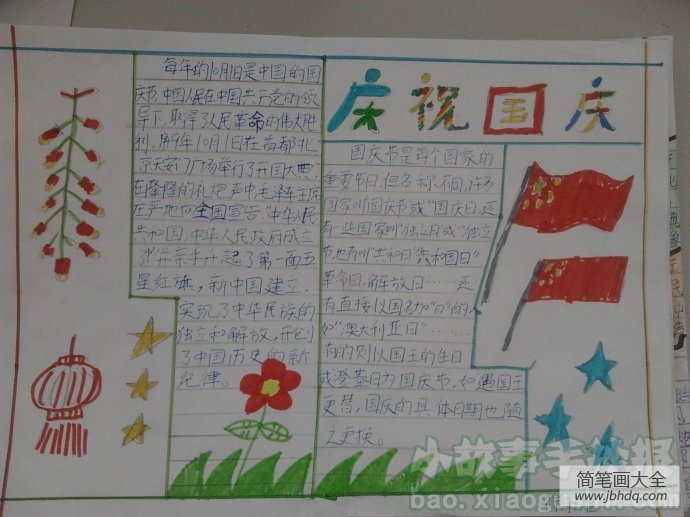 庆祝国庆
每年的10月1日是中国的国
庆节,中国人民在中国共产党的领
导下,取得了人民革命的伟大胜
利,1949年10月1日在首都北
京天安门广场举行了开国大典,
在隆隆的礼炮声中,毛泽东主席
庄严地向全国宣告"中华人民
共和国,中华人民政府成立
了"并亲手升起了第一面五
星红旗,新中国建立,
实现了中华民族的
独立和解放,开创
了中国历史的新
纪津。
国庆节是每个国家的
重要节日,但名称不同,许多
国家叫国庆节或"国庆日,还
有一些国家叫"独立日"或"独立
节,也有叫"共和日"共和国日"
革命日,解放日……还
有直接以国名加"日"的
如"澳大利亚日"………
有的则以国王的生日
或登基日为国庆节,如遇国王
更替,国庆的具体日期也随
之更换。
小故事手抄报
简笔画大全
www.jbhdq.com